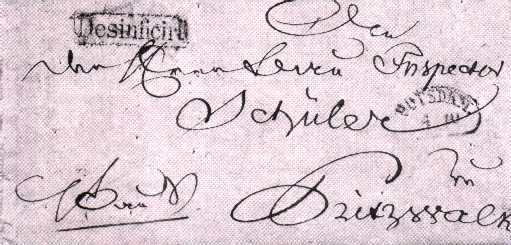 Desinficirt
Den
Herrn
Inspector
Schüler
POTSDAM
4 10
zu
Pritzwalk